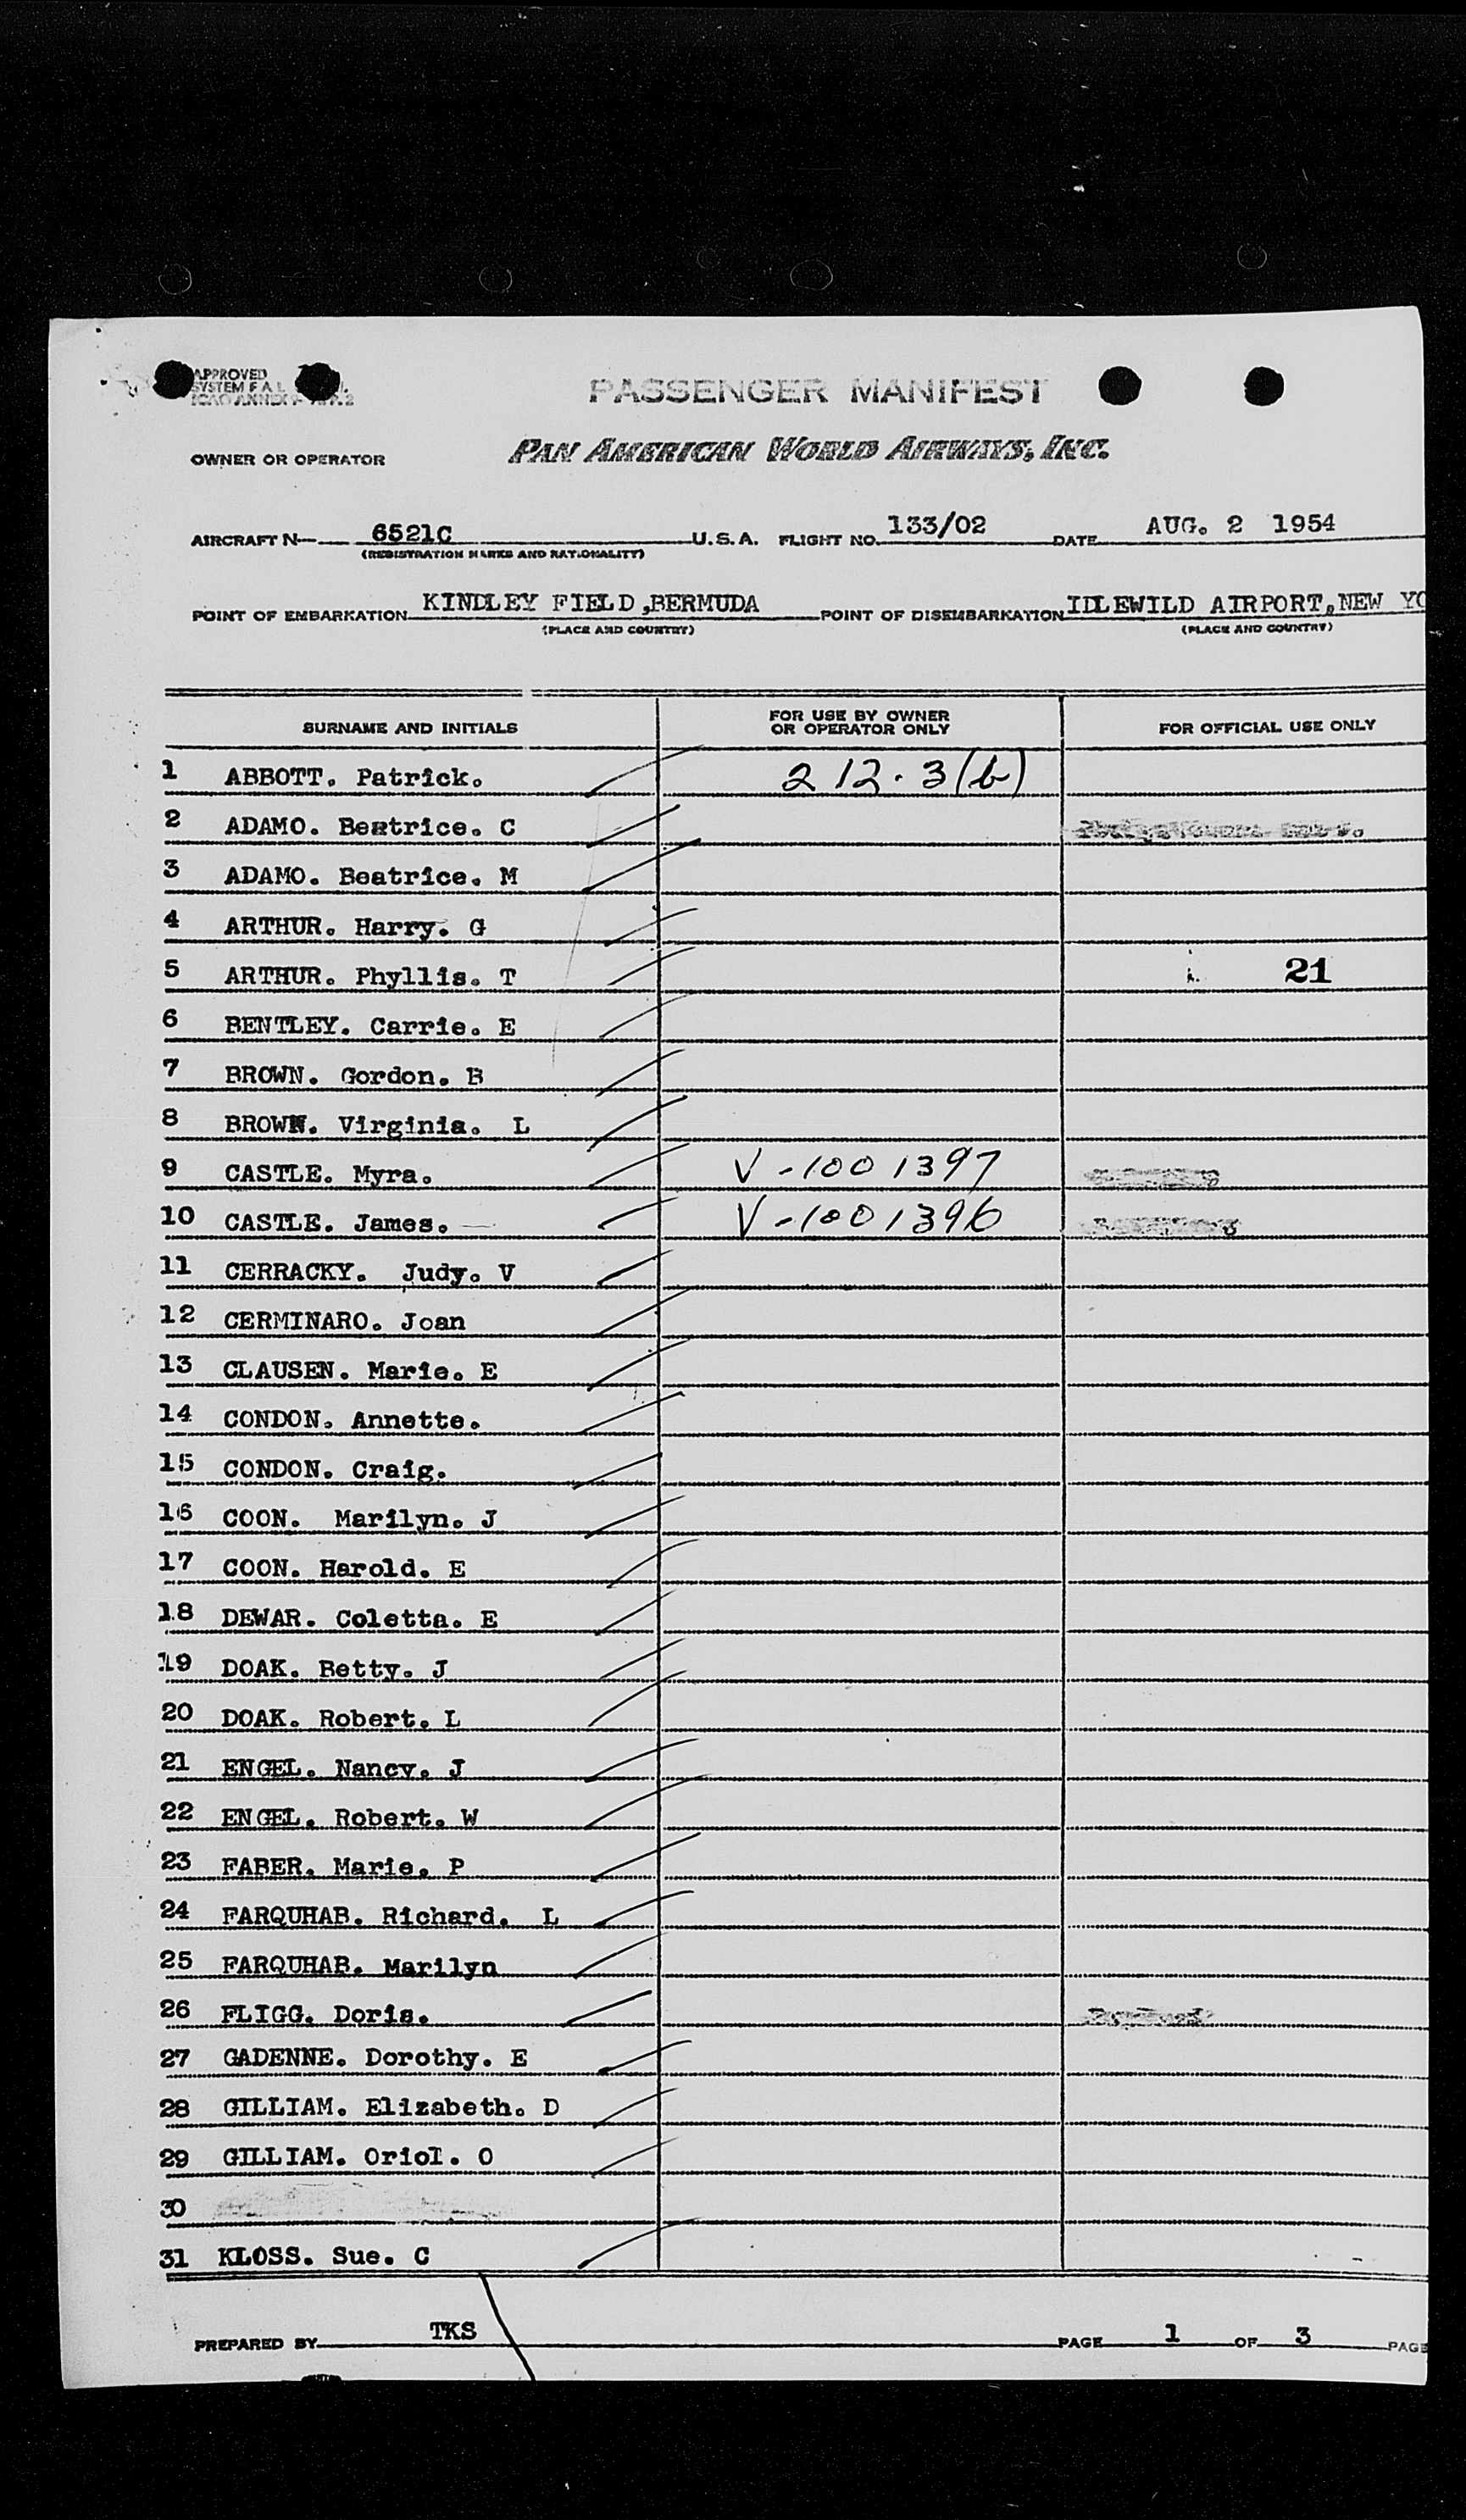 APPROVED
SYSTEM F A L
ICAO ANNEX 9
PASSENGER MANIFEST
OWNER OR OPERATOR PAN AMERICAN WORLD AIRWAYS, INC.
AIRCRAFT N- 6521C U.S.A. FLIGHT NO. 133/02 DATE AUG. 2 1954
(REGISTRATION MARKS AND NATIONALITY)
POINT OF EMBARKATION KINDLEY FIELD,BERMUDA POINT OF DISEMBARKATION IDLEWILD AIRPORT,NEW YO
(PLACE AND COUNTRY) (PLACE AND COUNTRY)
SURNAME AND INITIALS FOR USE BY OWNER OR OPERATOR ONLY FOR OFFICIAL USE ONLY
1 ABBOTT. Patrick. 212.3(b)
2 ADAMO. Beatrice. C
3 ADAMO. Beatrice. M
4 ARTHUR. Harry. G
5 ARTHUR. Phyllis. T 21
6 BENTLEY. Carrie. E
7 BROWN. Gordon. B
8 BROWN. Virginia. L
9 CASTLE. Myra. V-1001397
10 CASTLE. James. V-1001396
11 CERRACKY. Judy. V
12 CERMINARO. Joan
13 CLAUSEN. Marie. E
14 CONDON. Annette.
15 CONDON. Craig.
16 COON. Marilyn. J
17 COON. Harold. E
18 DEWAR. Coletta. E
19 DOAK. Betty. J
20 DOAK. Robert. L
21 ENGEL. Nancy. J
22 ENGEL. Robert. W
23 FABER. Marie. P
24 FARQUHAR. Richard. L
25 FARQUHAR. Marilyn
26 FLIGG. Doris.
27 GADENNE. Dorothy. E
28 GILLIAM. Elizabeth. D
29 GILLIAM. Oriol. O
30
31 KLOSS. Sue. C
PREPARED BY TKS PAGE 1 OF 3 PAGE